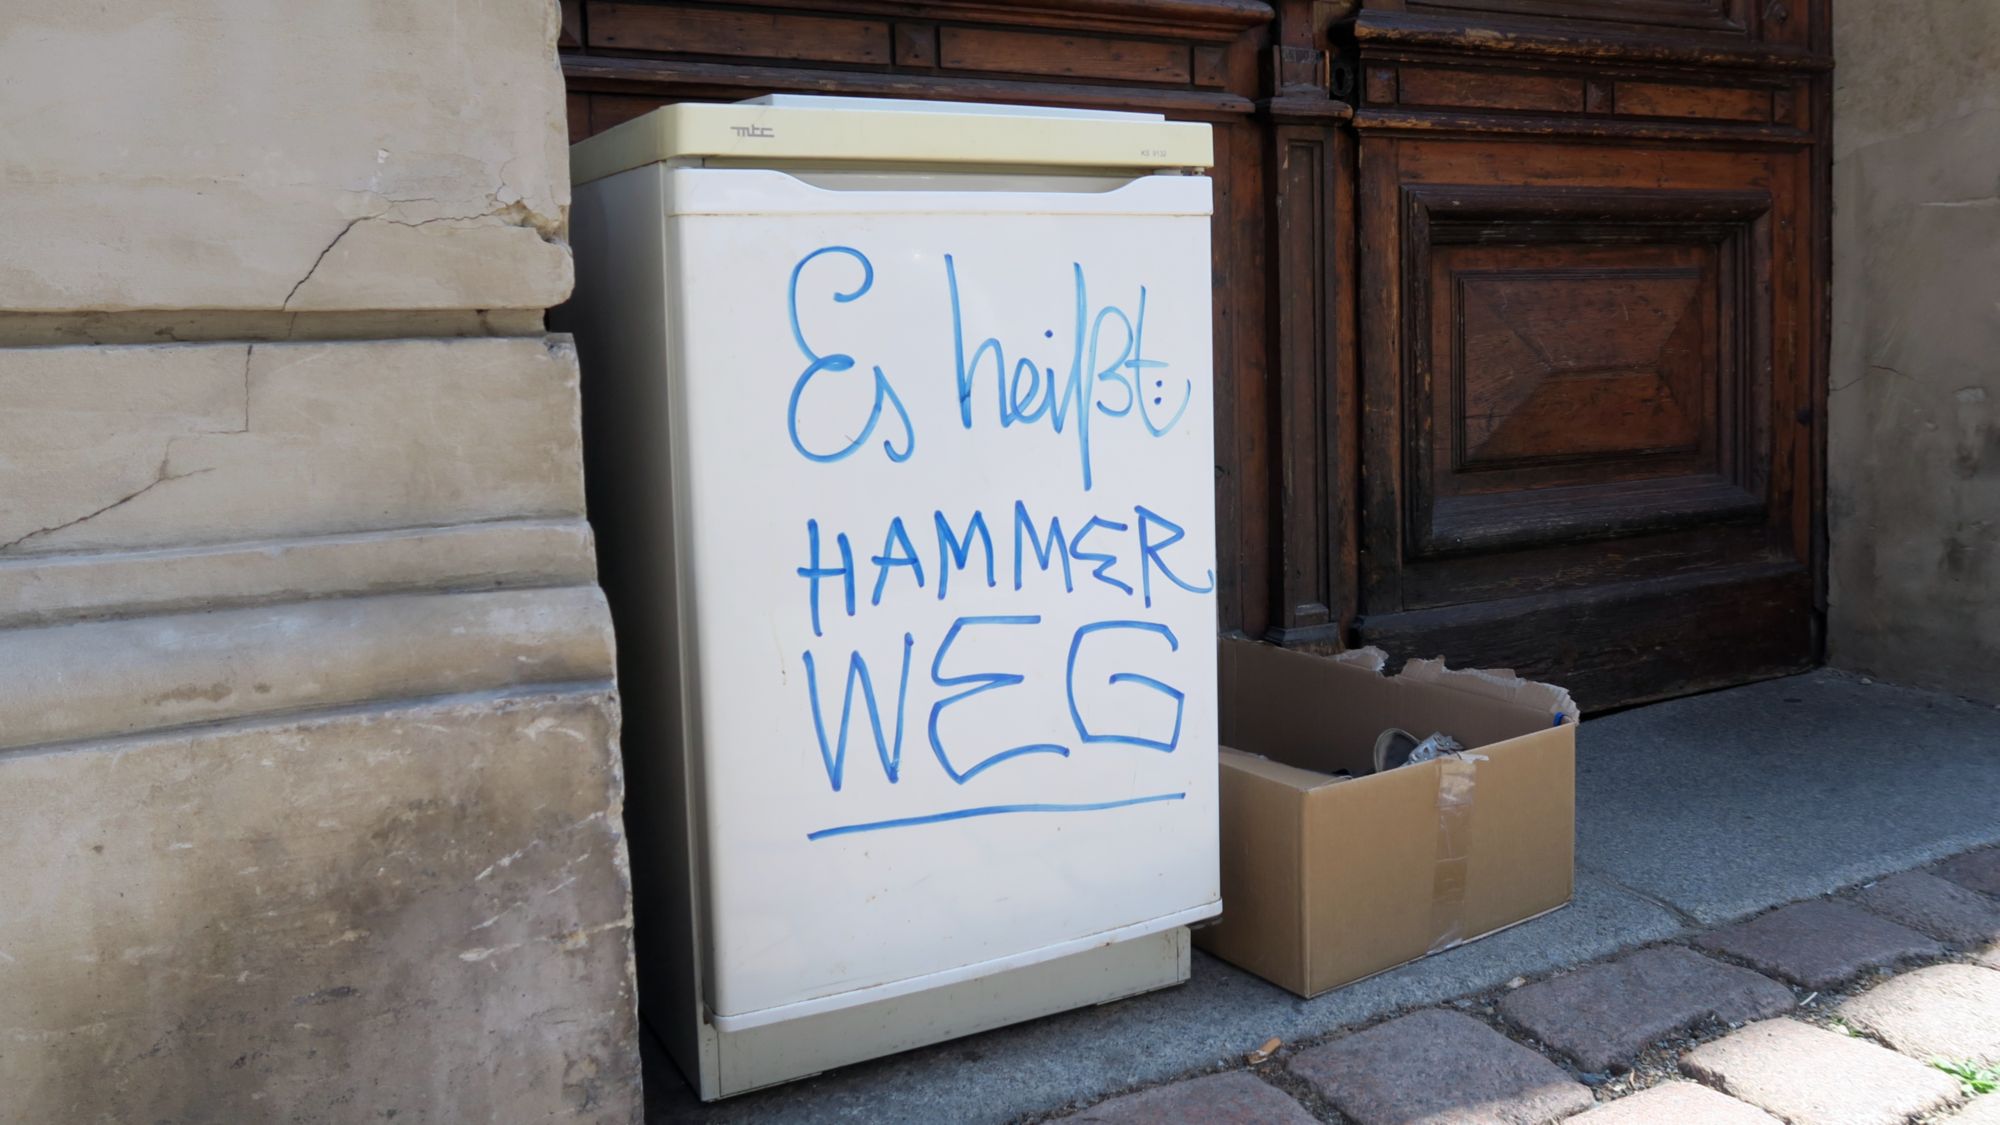 mtc
KS 9132
Es heißt:
HAMMER
WEG